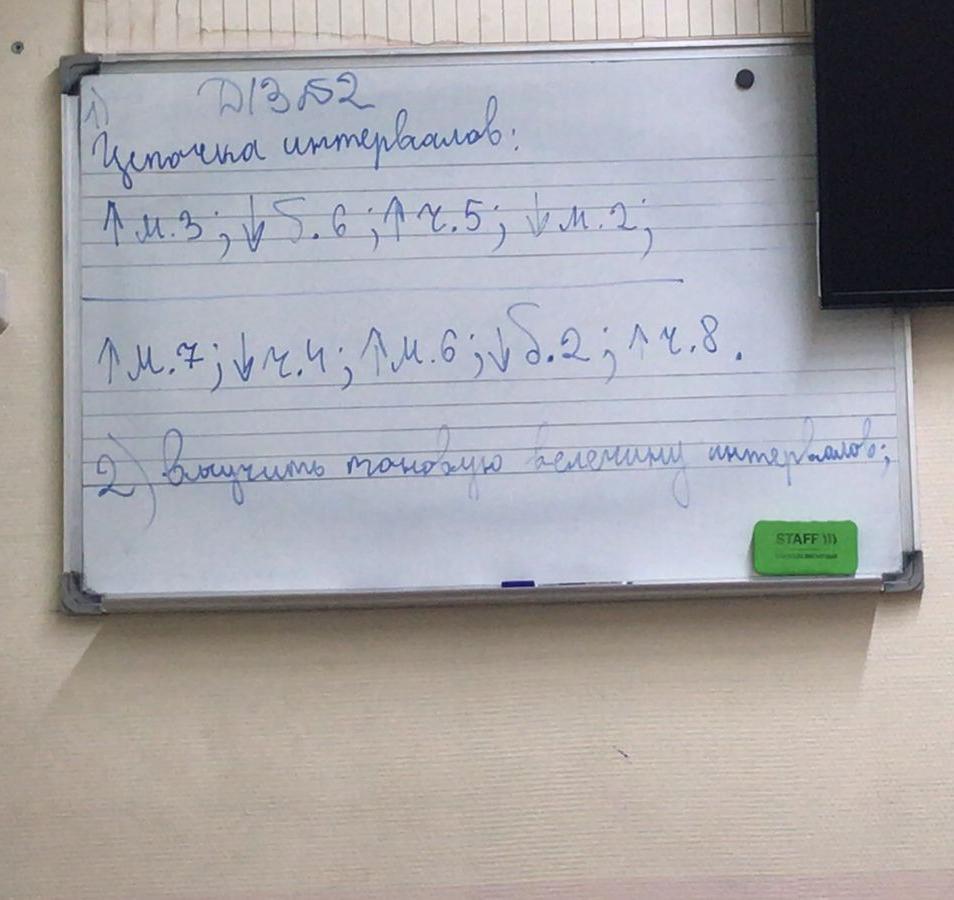 Д/З №2
1)
Цепочка интервалов:
↑м.3; ↓б.6; ↑ч.5; ↓м.2;
↑м.7; ↓ч.4; ↑м.6; ↓б.2; ↑ч.8.
2) Выучить тоновую велечину интервалов;
STAFF